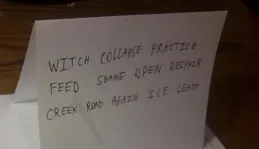 WITCH COLLAPSE PRACTICE
FEED SHAME OPEN DESPAIR
CREEK ROAD AGAIN ICE LEAST